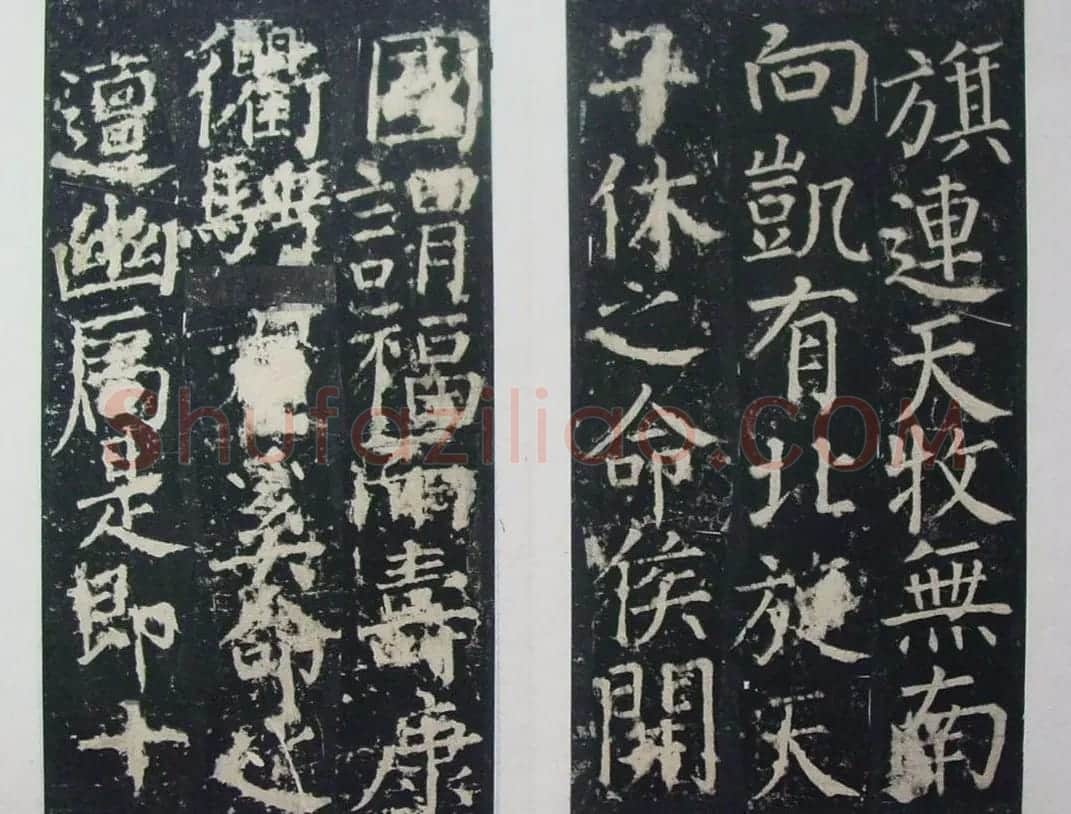 旗連天牧無南
向凱有北旋天
子休之命侯開
國謂福爾壽康
衢騁命迍
邅幽厲是即十
Shufaziliao.COM